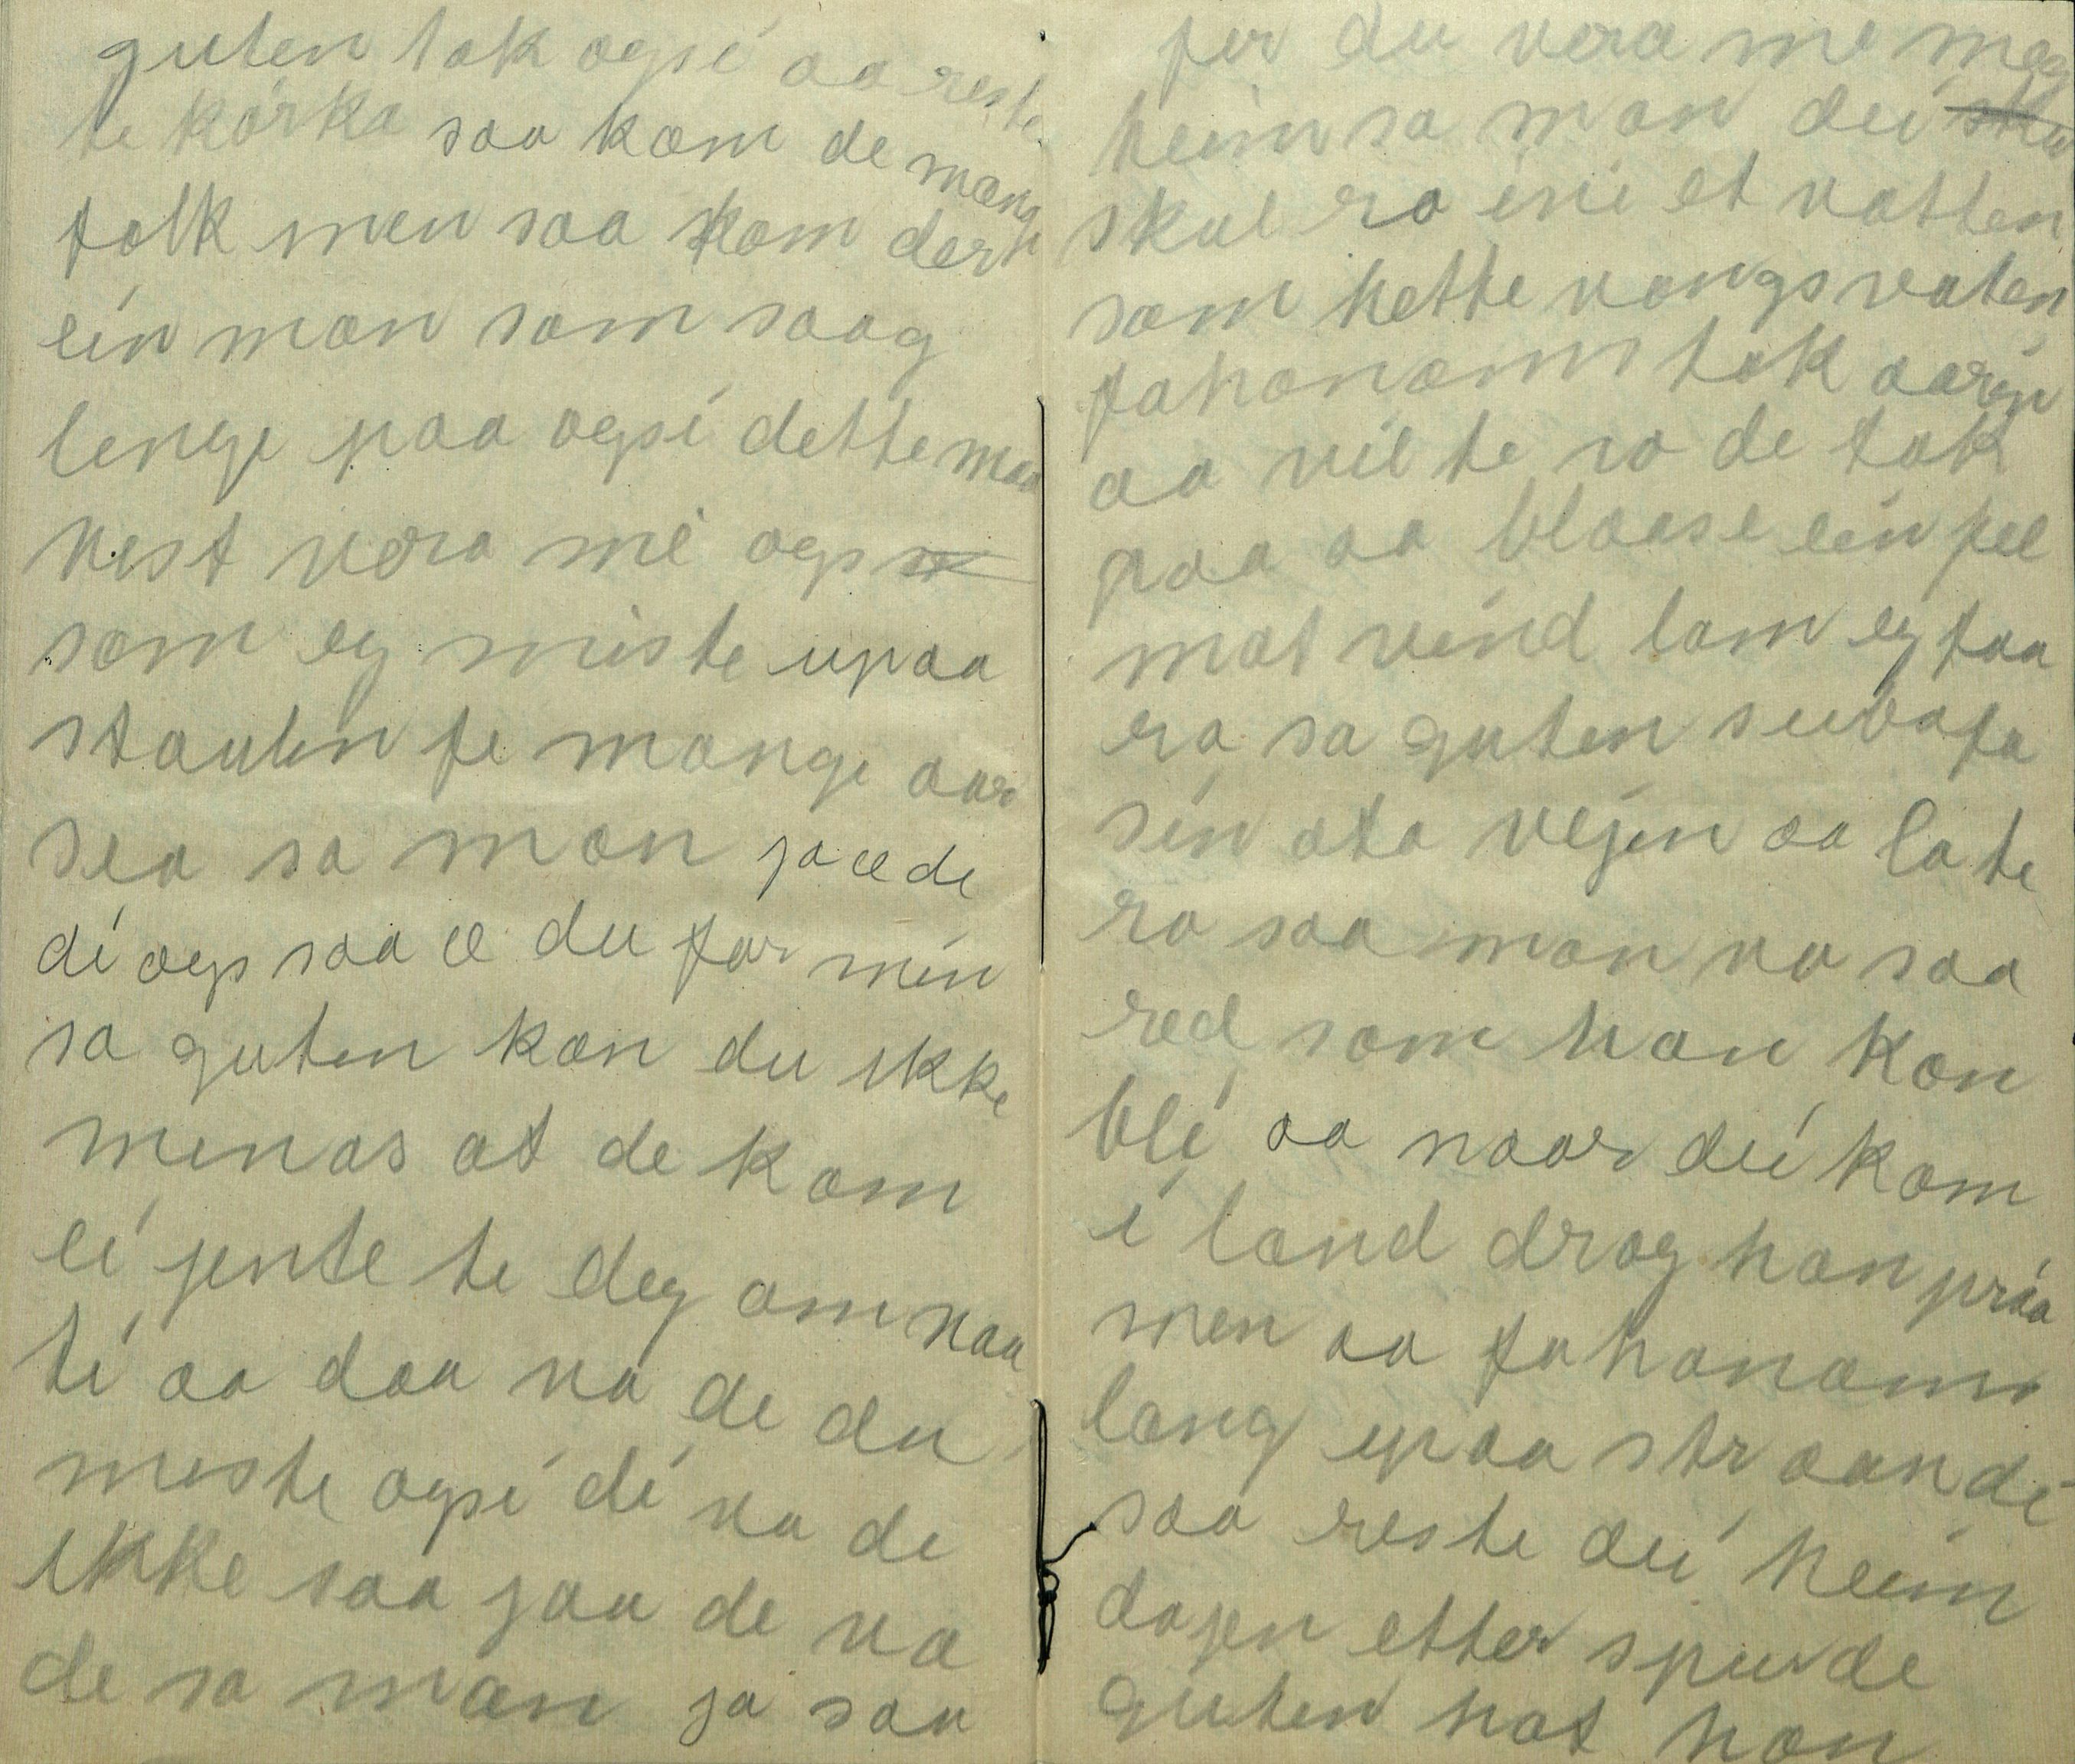 guten tok øgsi aa reste
te kørka saa kom de mange
folk men saa kom der te
ein man som saag
lenge paa øgsi dette maa
vest vera mi øgs
som eg miste upaa
staulen fe mange aar
sea sa man ja æ de
di øgs saa æ du far min
sa guten kan du ikke
minas at de kom
ei jente te deg om naa
ti aa daa va de du
miste øgsi di va de
ikke saa jaa de va
de sa man ja saa
fer du vera me meg
heim sa man dei sku
skul ro ivi et vatten
som hette vangsvaten
fahanams tok aarin
aa vil te ro de tok
paa aa blaase ein pel
mot vind lam eg faa
ro sa guten
sin ata vejin aa la te
ro saa man va saa
red som han kan
bli aa naar dei kom
i land drog han praa
men aa fahanams
lang upaa straandi
saa reste dei heim
dajen etter spurde
guten hot han